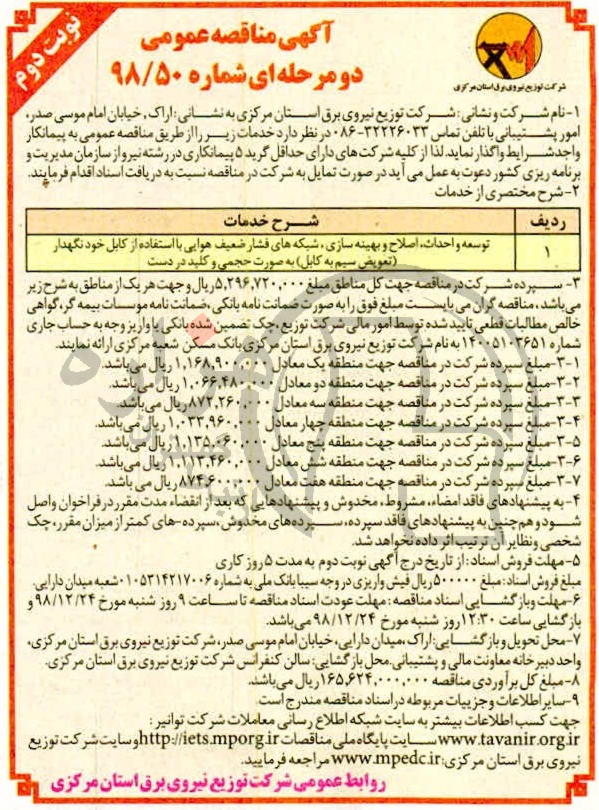 نوبت دوم
آگهی مناقصه عمومی
دو مرحله ای شماره ۹۸/۵۰
شرکت توزیع نیروی برق استان مرکزی
۱- نام شرکت و نشانی: شرکت توزیع نیروی برق استان مرکزی به نشانی: اراک، خیابان امام موسی صدر،
امور پشتیبانی با تلفن تماس ۳۲۲۲۶۰۳۳-۰۸۶ در نظر دارد خدمات زیر را از طریق مناقصه عمومی به پیمانکار
واجد شرایط واگذار نماید. لذا از کلیه شرکت های دارای حداقل گرید ۵ پیمانکاری در رشته نیرو از سازمان مدیریت و
برنامه ریزی کشور دعوت به عمل می آید در صورت تمایل به شرکت در مناقصه نسبت به دریافت اسناد اقدام فرمایند.
۲- شرح مختصری از خدمات
ردیف شرح خدمات
۱ توسعه و احداث، اصلاح و بهینه سازی، شبکه های فشار ضعیف هوایی با استفاده از کابل خود نگهدار
(تعویض سیم به کابل) به صورت حجمی و کلید در دست
۳- سپرده شرکت در مناقصه جهت کل مناطق مبلغ ۵,۲۹۶,۷۲۰,۰۰۰ ریال و جهت هر یک از مناطق به شرح زیر
می باشد، مناقصه گران می بایست مبلغ فوق را به صورت ضمانت نامه بانکی، ضمانت نامه موسسات بیمه گر، گواهی
خالص مطالبات قطعی تایید شده توسط امور مالی شرکت توزیع، چک تضمین شده بانکی یا واریز وجه به حساب جاری
شماره ۱۴۰۰۵۱۰۳۶۵۱ به نام شرکت توزیع نیروی برق استان مرکزی بانک مسکن شعبه مرکزی ارائه نمایند.
۳-۱- مبلغ سپرده شرکت در مناقصه جهت منطقه یک معادل ۱,۱۶۸,۹۰۰,۰۰۰ ریال می باشد.
۳-۲- مبلغ سپرده شرکت در مناقصه جهت منطقه دو معادل ۱,۰۶۶,۴۸۰,۰۰۰ ریال می باشد.
۳-۳- مبلغ سپرده شرکت در مناقصه جهت منطقه سه معادل ۸۷۲,۲۶۰,۰۰۰ ریال می باشد.
۳-۴- مبلغ سپرده شرکت در مناقصه جهت منطقه چهار معادل ۱,۰۳۳,۹۶۰,۰۰۰ ریال می باشد.
۳-۵- مبلغ سپرده شرکت در مناقصه جهت منطقه پنج معادل ۱,۱۳۵,۰۶۰,۰۰۰ ریال می باشد.
۳-۶- مبلغ سپرده شرکت در مناقصه جهت منطقه شش معادل ۱,۱۱۳,۴۶۰,۰۰۰ ریال می باشد.
۳-۷- مبلغ سپرده شرکت در مناقصه جهت منطقه هفت معادل ۸۷۴,۶۰۰,۰۰۰ ریال می باشد.
۴- به پیشنهادهای فاقد امضاء، مشروط، مخدوش و پیشنهادهایی که بعد از انقضاء مدت مقرر در فراخوان واصل
شود و هم چنین به پیشنهادهای فاقد سپرده، سپرده های مخدوش، سپرده-های کمتر از میزان مقرر، چک
شخصی و نظایر آن ترتیب اثر داده نخواهد شد.
۵- مهلت فروش اسناد: از تاریخ درج آگهی نوبت دوم به مدت ۵ روز کاری
مبلغ فروش اسناد: مبلغ ۵۰۰۰۰۰ ریال فیش واریزی در وجه سیبا بانک ملی به شماره ۰۱۰۵۳۱۴۲۱۷۰۰۶ شعبه میدان دارایی.
۶- مهلت و بازگشایی اسناد مناقصه: مهلت عودت اسناد مناقصه تا ساعت ۹ روز شنبه مورخ ۹۸/۱۲/۲۴ و
بازگشایی ساعت ۱۲:۳۰ روز شنبه مورخ ۹۸/۱۲/۲۴ می باشد.
۷- محل تحویل و بازگشایی: اراک، میدان دارایی، خیابان امام موسی صدر، شرکت توزیع نیروی برق استان مرکزی،
واحد دبیرخانه معاونت مالی و پشتیبانی. محل بازگشایی: سالن کنفرانس شرکت توزیع نیروی برق استان مرکزی.
۸- مبلغ کل برآوردی مناقصه ۱۶۵,۶۲۴,۰۰۰,۰۰۰ ریال می باشد.
۹- سایر اطلاعات و جزییات مربوطه در اسناد مناقصه مندرج است.
جهت کسب اطلاعات بیشتر به سایت شبکه اطلاع رسانی معاملات شرکت توانیر:
www.tavanir.org.ir سایت پایگاه ملی مناقصات http://iets.mporg.ir و سایت شرکت توزیع
نیروی برق استان مرکزی: www.mpedc.ir مراجعه فرمایید.
روابط عمومی شرکت توزیع نیروی برق استان مرکزی